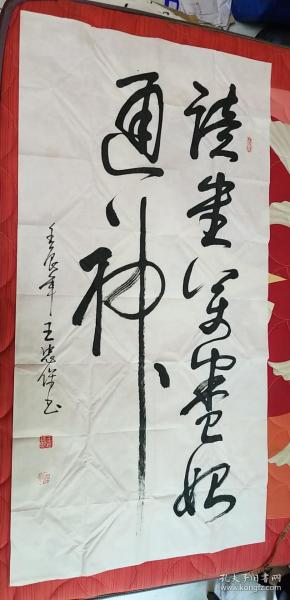 读书万卷始
通神
壬辰年 王忠保书
孔夫子旧书网
www.kongfz.com